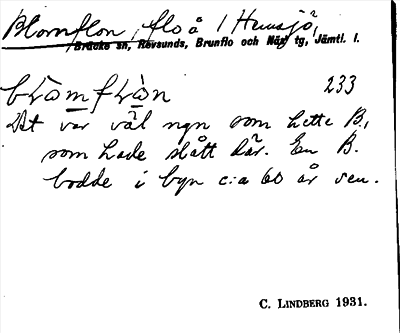 Blomflon, flo å / Hemsjö,
Bräcke sn, Revsunds, Brunflo och Näs tg, Jämtl. l.
233
Det var väl ngn som hette B,
som hade slått där. En B.
bodde i byn c:a 60 år sen.
C. LINDBERG 1931.